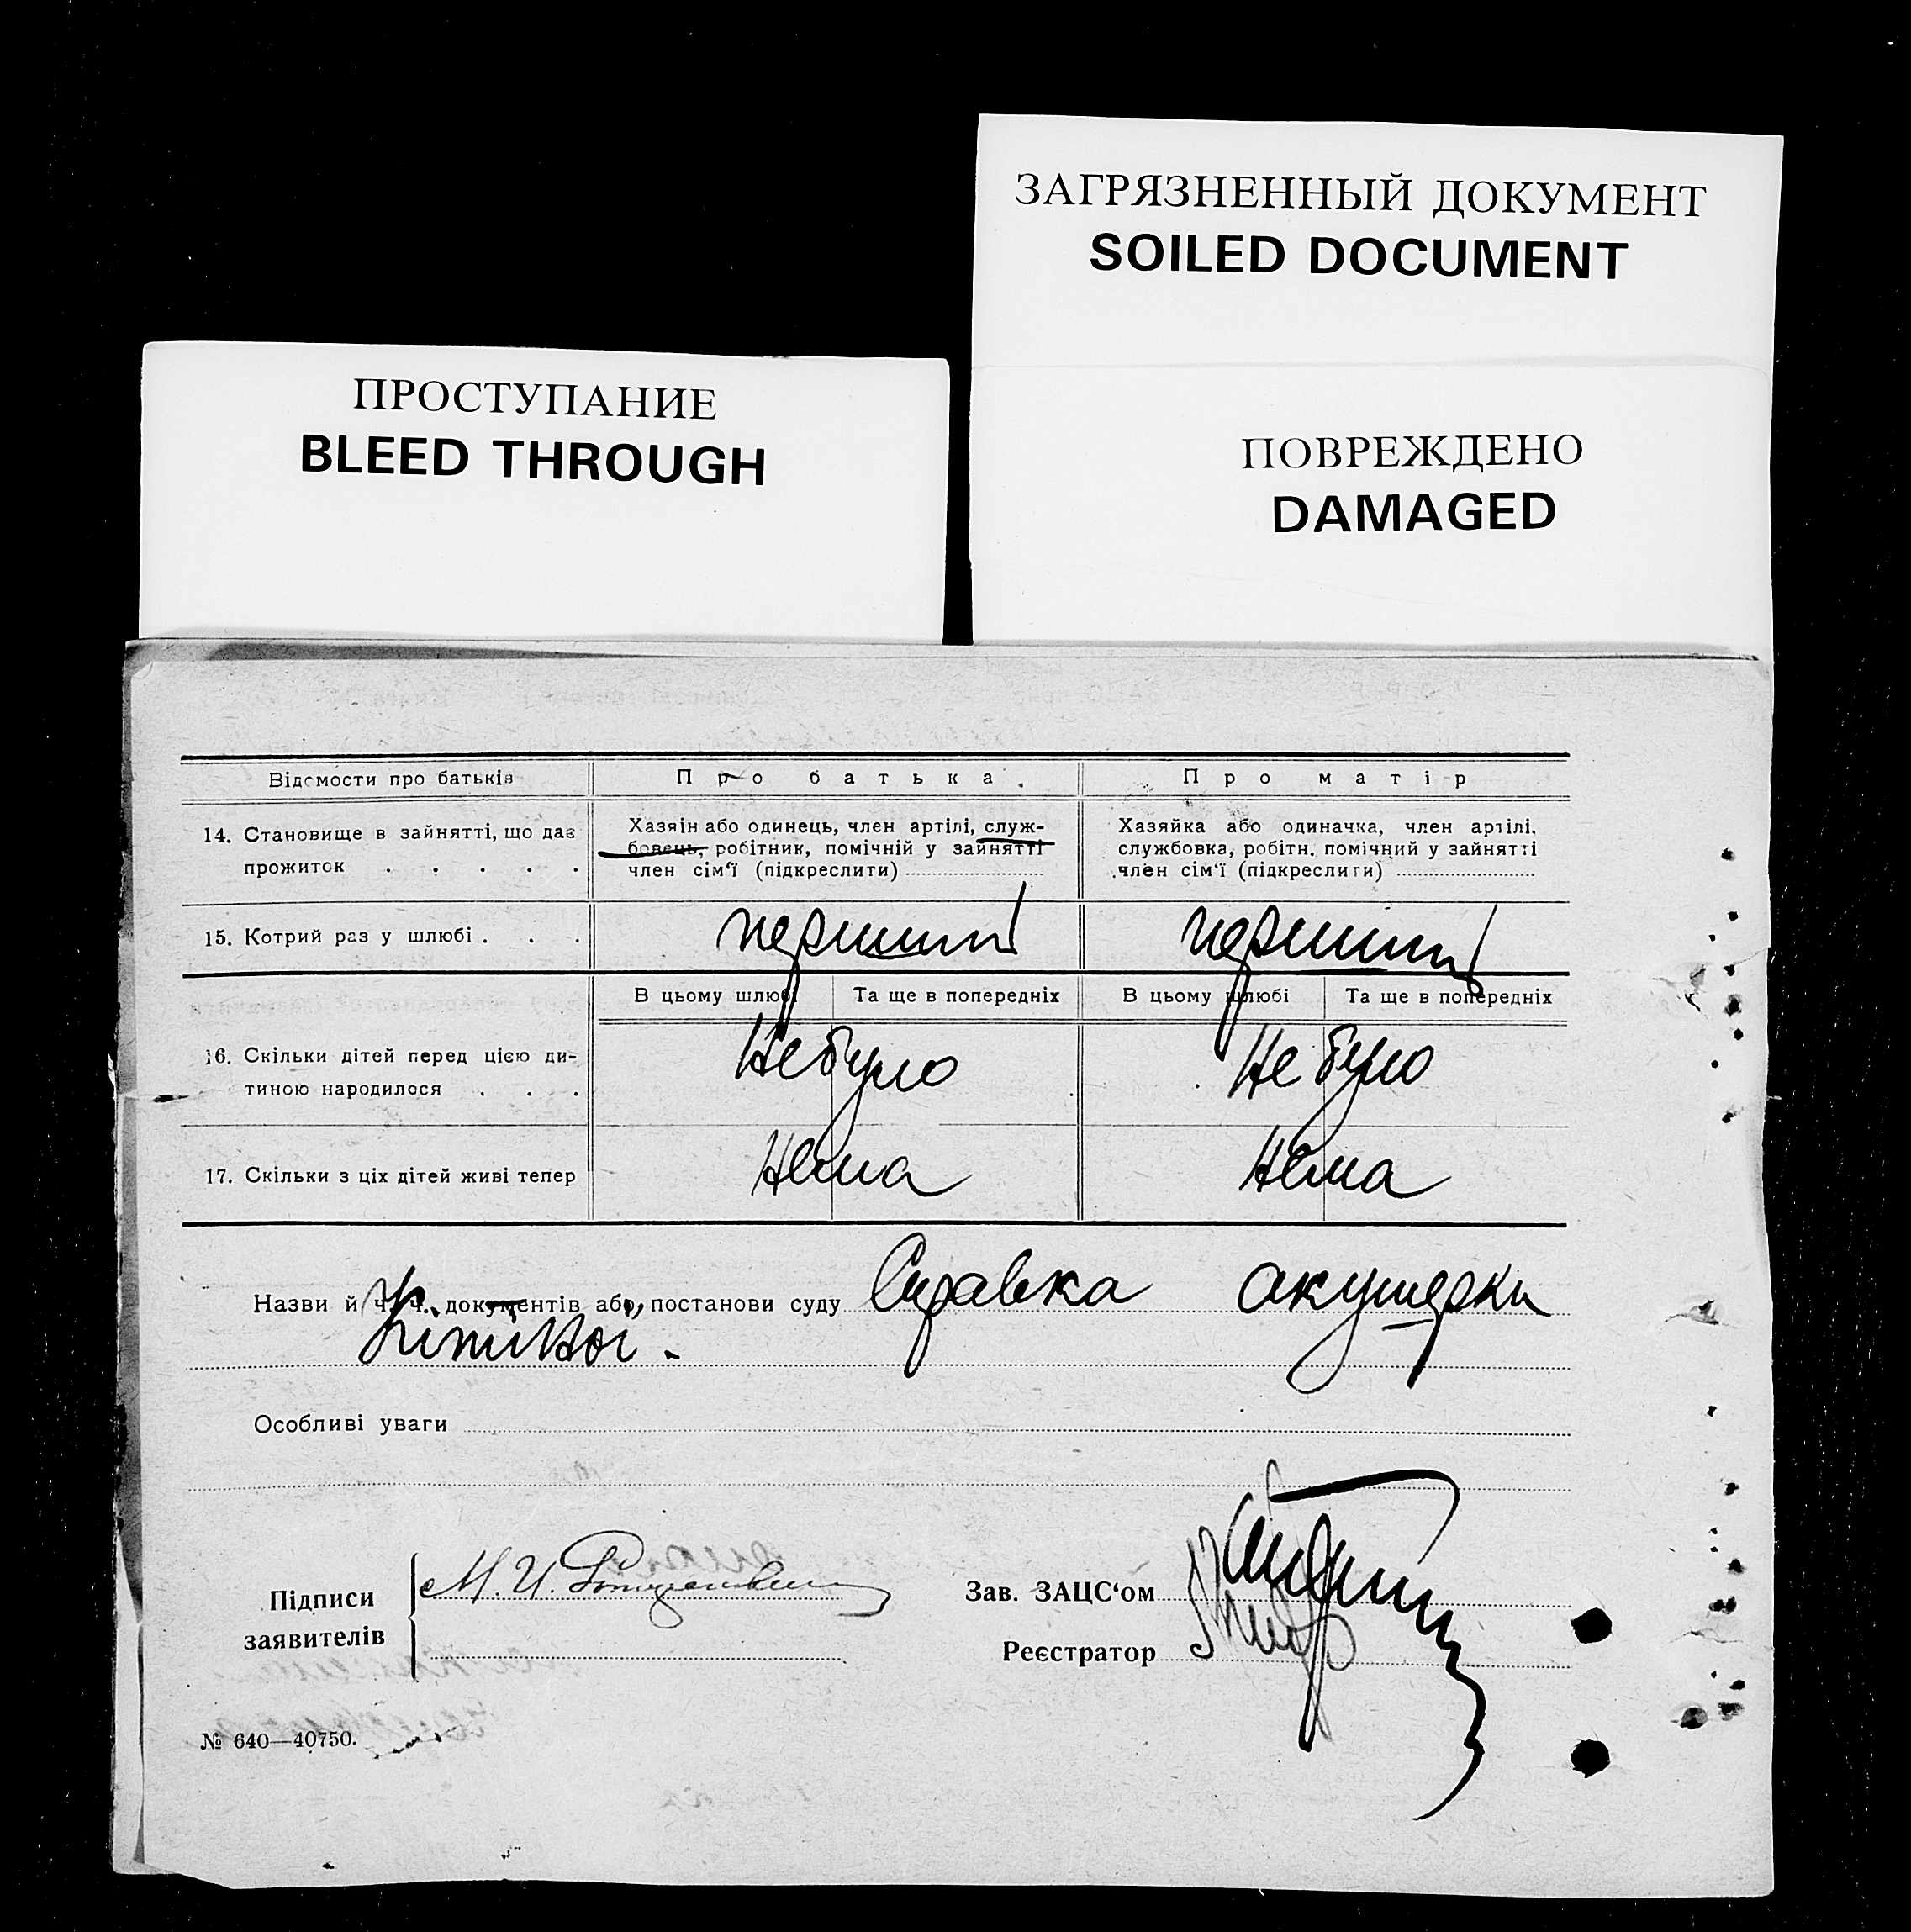 ЗАГРЯЗНЕННЫЙ ДОКУМЕНТ
SOILED DOCUMENT
ПРОСТУПАНИЕ
BLEED THROUGH
ПОВРЕЖДЕНО
DAMAGED
Відомости про батьків
Про батька.
Про матір
14. Становище в зайнятті, що дає
прожиток . . . . .
Хазяін або одинець, член артілі, служ-
бовець, робітник, помічній у зайнятті
член сім'ї (підкреслити)
Хазяйка або одиначка, член артілі,
службовка, робітн. помічний у зайнятті
член сім'ї (підкреслити)
15. Котрий раз у шлюбі . . .
перший
перший
В цьому шлюбі
Та ще в попередніх
В цьому шлюбі
Та ще в попередніх
16. Скільки дітей перед цією ди-
тиною народилося . . .
Не було
Не було
17. Скільки з ціх дітей живі тепер
Нема
Нема
Назви й ч. ч. документів або постанови суду Справка акушерки
Особливі уваги
Підписи
заявителів
М. И.
Зав. ЗАЦС'ом
Реєстратор
№ 640—40750.